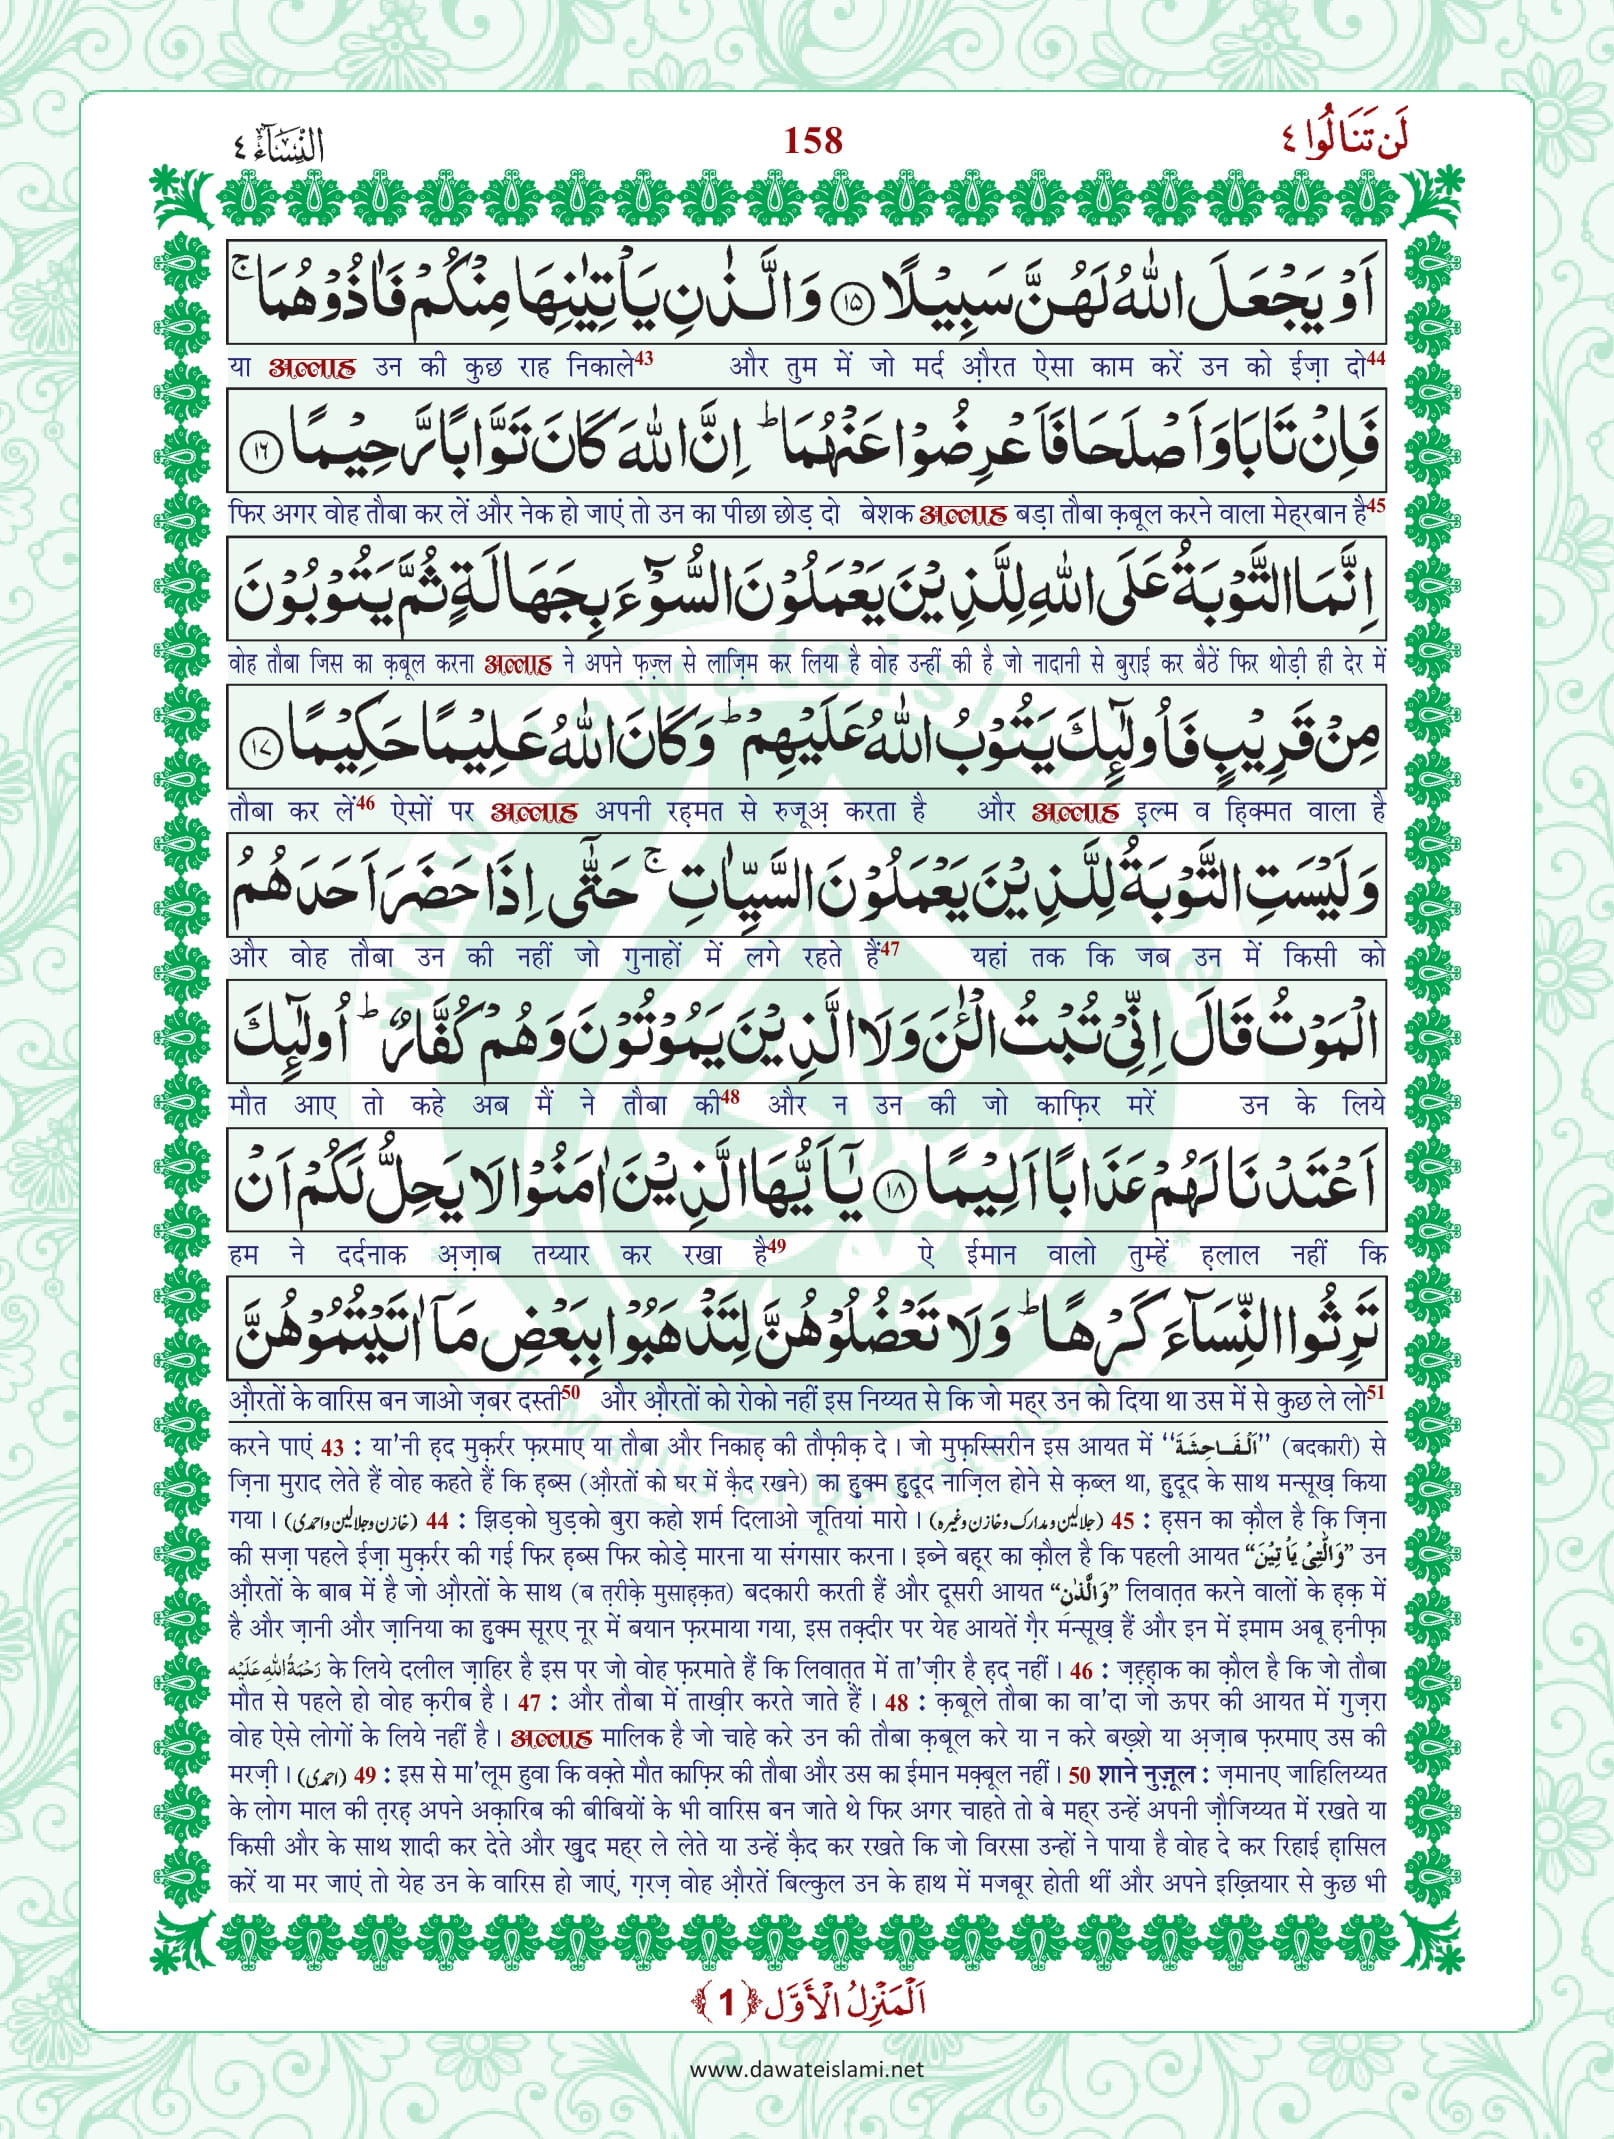 لَنْ تَنَالُوا ٤
158
النِّسَآء ٤
اَوْ یَجْعَلَ اللّٰهُ لَهُنَّ سَبِیْلًا ﴿۱۵﴾ وَالَّذٰنِ یَاْتِیٰنِهَا مِنْكُمْ فَاٰذُوْهُمَا ۚ
या अल्लाह उन की कुछ राह निकाले43 और तुम में जो मर्द औ़रत ऐसा काम करें उन को ईज़ा दो44
فَاِنْ تَابَا وَاَصْلَحَا فَاَعْرِضُوْا عَنْهُمَا ؕ اِنَّ اللّٰهَ كَانَ تَوَّابًا رَّحِیْمًا ﴿۱۶﴾
फिर अगर वोह तौबा कर लें और नेक हो जाएं तो उन का पीछा छोड़ दो बेशक अल्लाह बड़ा तौबा क़बूल करने वाला मेह्‌रबान है45
اِنَّمَا التَّوْبَةُ عَلَى اللّٰهِ لِلَّذِیْنَ یَعْمَلُوْنَ السُّوْٓءَ بِجَهَالَةٍ ثُمَّ یَتُوْبُوْنَ
वोह तौबा जिस का क़बूल करना अल्लाह ने अपने फ़ज़्ल से लाज़िम कर लिया है वोह उन्हीं की है जो नादानी से बुराई कर बैठें फिर थोड़ी ही देर में
مِنْ قَرِیْبٍ فَاُولٰٓىِٕكَ یَتُوْبُ اللّٰهُ عَلَیْهِمْ ؕ وَكَانَ اللّٰهُ عَلِیْمًا حَكِیْمًا ﴿۱۷﴾
तौबा कर लें46 ऐसों पर अल्लाह अपनी रह़मत से रुजूअ़ करता है और अल्लाह इल्म व ह़िक्मत वाला है
وَلَیْسَتِ التَّوْبَةُ لِلَّذِیْنَ یَعْمَلُوْنَ السَّیِّاٰتِ ۚ حَتّٰۤى اِذَا حَضَرَ اَحَدَهُمُ
और वोह तौबा उन की नहीं जो गुनाहों में लगे रहते हैं47 यहां तक कि जब उन में किसी को
الْمَوْتُ قَالَ اِنِّیْ تُبْتُ الْـٰٔنَ وَلَا الَّذِیْنَ یَمُوْتُوْنَ وَهُمْ كُفَّارٌ ؕ اُولٰٓىِٕكَ
मौत आए तो कहे अब मैं ने तौबा की48 और न उन की जो काफ़िर मरें उन के लिये
اَعْتَدْنَا لَهُمْ عَذَابًا اَلِیْمًا ﴿۱۸﴾ یٰۤاَیُّهَا الَّذِیْنَ اٰمَنُوْا لَا یَحِلُّ لَكُمْ اَنْ
हम ने दर्दनाक अ़ज़ाब तय्यार कर रखा है49 ऐ ईमान वालो तुम्हें ह़लाल नहीं कि
تَرِثُوا النِّسَآءَ كَرْهًا ؕ وَلَا تَعْضُلُوْهُنَّ لِتَذْهَبُوْا بِبَعْضِ مَاۤ اٰتَیْتُمُوْهُنَّ
औ़रतों के वारिस बन जाओ ज़बर दस्ती50 और औ़रतों को रोको नहीं इस निय्यत से कि जो मह्‌र उन को दिया था उस में से कुछ ले लो51
करने पाएं 43 : या'नी ह़द मुक़र्रर फ़रमाए या तौबा और निकाह़ की तौफ़ीक़ दे। जो मुफ़स्सिरीन इस आयत में ‘‘اَلْفَاحِشَةَ’’ (बदकारी) से
ज़िना मुराद लेते हैं वोह कहते हैं कि ह़ब्स (औ़रतों को घर में क़ैद रखने) का ह़ुक्म ह़ुदूद नाज़िल होने से क़ब्ल था, ह़ुदूद के साथ मन्सूख़ किया
गया। (خازن وجلالین واحمدی) 44 : झिड़को घुड़को बुरा कहो शर्म दिलाओ जूतियां मारो। (جلالین ومدارک وخازن وغیرہ) 45 : ह़सन का क़ौल है कि ज़िना
की सज़ा पहले ईज़ा मुक़र्रर की गई फिर ह़ब्स फिर कोड़े मारना या संगसार करना। इब्ने बह़्‌र का क़ौल है कि पहली आयत “وَالّٰتِیْ یَاْتِیْنَ” उन
औ़रतों के बाब में है जो औ़रतों के साथ (ब त़रीक़े मुसाह़क़त) बदकारी करती हैं और दूसरी आयत “وَالَّذٰنِ” लिवात़त करने वालों के ह़क़ में
है और ज़ानी और ज़ानिया का ह़ुक्म सूरए नूर में बयान फ़रमाया गया, इस तक़्दीर पर येह आयतें ग़ैर मन्सूख़ हैं और इन में इमाम अबू ह़नीफ़ा
رَحْمَةُ اللّٰهِ عَلَیْه के लिये दलील ज़ाहिर है इस पर जो वोह फ़रमाते हैं कि लिवात़त में ता'ज़ीर है ह़द नहीं। 46 : ज़ह़्ह़ाक का क़ौल है कि जो तौबा
मौत से पहले हो वोह क़रीब है। 47 : और तौबा में ताख़ीर करते जाते हैं। 48 : क़बूले तौबा का वा'दा जो ऊपर की आयत में गुज़रा
वोह ऐसे लोगों के लिये नहीं है। अल्लाह मालिक है जो चाहे करे उन की तौबा क़बूल करे या न करे बख़्शे या अ़ज़ाब फ़रमाए उस की
मरज़ी। (احمدی) 49 : इस से मा'लूम हुवा कि वक़्ते मौत काफ़िर की तौबा और उस का ईमान मक़्बूल नहीं। 50 शाने नुज़ूल : ज़मानए जाहिलिय्यत
के लोग माल की त़रह़ अपने अक़ारिब की बीबियों के भी वारिस बन जाते थे फिर अगर चाहते तो बे मह्‌र उन्हें अपनी ज़ौजिय्यत में रखते या
किसी और के साथ शादी कर देते और ख़ुद मह्‌र ले लेते या उन्हें क़ैद कर रखते कि जो विरसा उन्हों ने पाया है वोह दे कर रिहाई ह़ासिल
करें या मर जाएं तो येह उन के वारिस हो जाएं, ग़रज़ वोह औ़रतें बिल्कुल उन के हाथ में मजबूर होती थीं और अपने इख़्तियार से कुछ भी
اَلْمَنْزِلُ الْاَوَّل ﴿1﴾
www.dawateislami.net